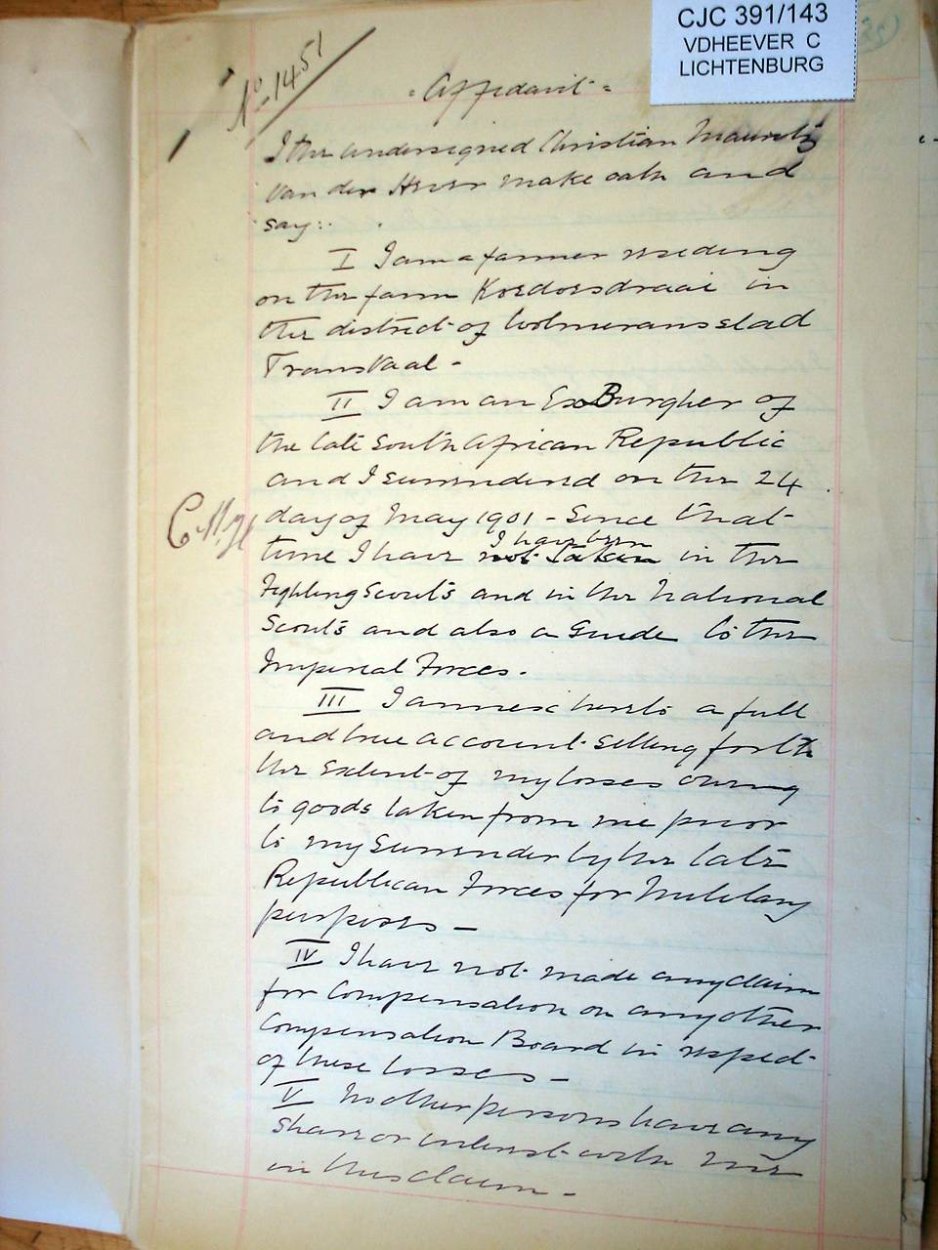 CJC 391/143
VDHEEVER C
LICHTENBURG
No 1451
Affidavit
I the undersigned Christian Mauritz
van der Hever make oath and
say:
I I am a farmer residing
on the farm Koedoesdraai in
the district of Wolmeransstad
Transvaal -
II I am an Ex Burgher of
the late South African Republic
and I surrendered on the 24
day of May 1901 - Since that
I have been
time I have not taken in the
Fighting Scouts and in the National
Scouts and also a Guide to the
Imperial Forces.
III I annex hereto a full
and true account setting forth
the extent of my losses owing
to goods taken from me prior
to my surrender by the late
Republican Forces for Military
purposes -
IV I have not made any claim
for Compensation on any other
Compensation Board in respect
of these losses -
V No other persons have any
share or interest with me
in this claim -